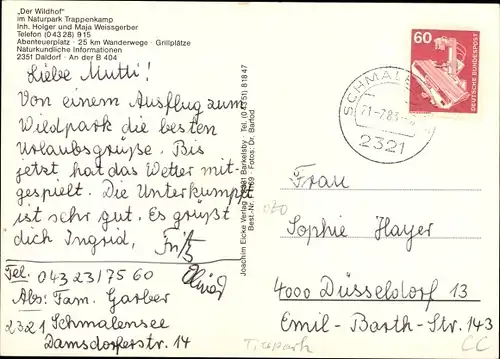 „Der Wildhof"
im Naturpark Trappenkamp
Inh. Holger und Maja Weissgerber
Telefon (0 43 28) 9 15
Abenteuerplatz · 25 km Wanderwege · Grillplätze
Naturkundliche Informationen
2351 Daldorf · An der B 404
Liebe Mutti!
Von einem Ausflug zum
Wildpark die besten
Urlaubsgrüße. Bis
jetzt hat das Wetter mit-
gespielt. Die Unterkunft
ist sehr gut. Es grüßt
dich Ingrid, Fritz
Tel. 04323/7560
Abs: Fam. Garber
2321 Schmalensee
Damsdorferstr. 14
Joachim Eicke Verlag · Barkelsby · Tel. (0 43 51) 8 18 47
Best.-Nr. · Fotos: Dr. Bartod
60
DEUTSCHE BUNDESPOST
SCHMALE
21-7.83
2321
Frau
Sophie Hayer
4000 Düsseldorf 13
Emil-Barth-Str. 143
Tierpark
CC